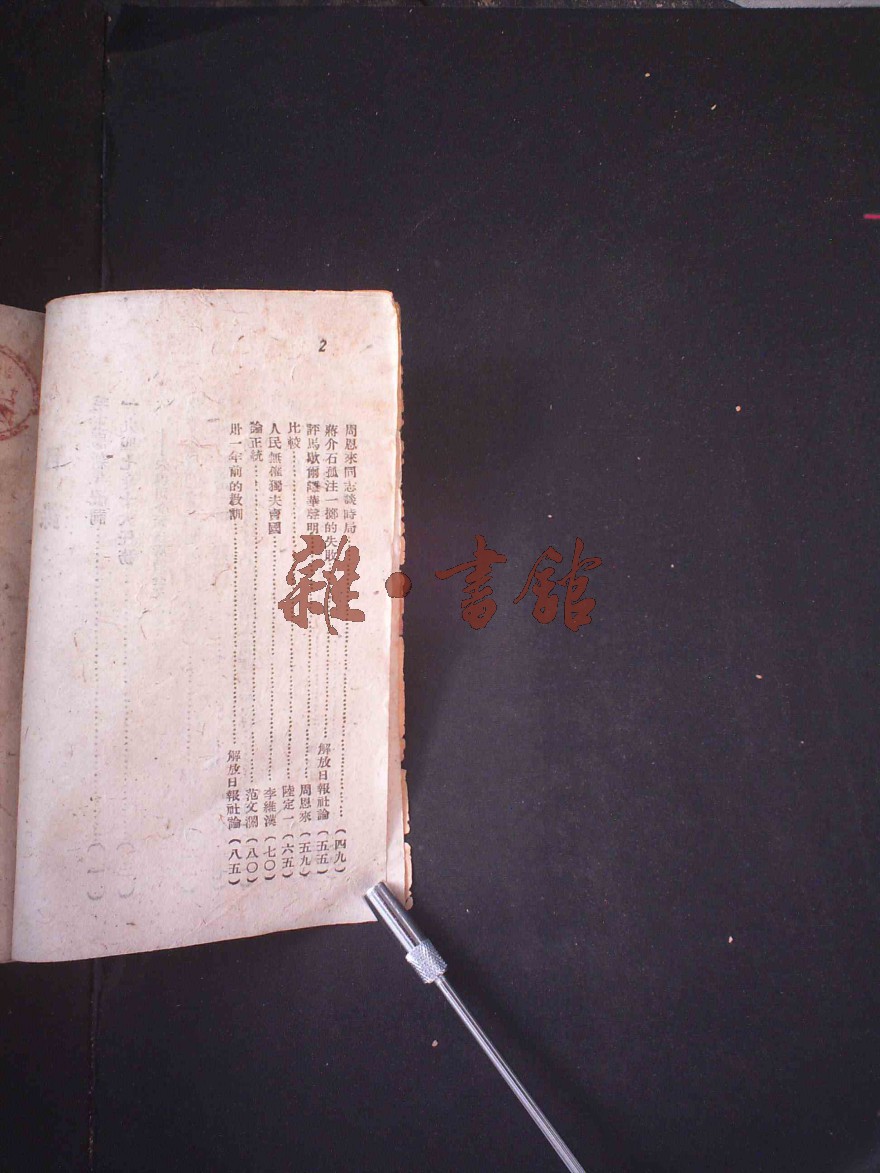 2
周恩來同志談時局……（四九）
蔣介石孤注一擲的失敗……解放日報社論（五五）
評馬歇爾離華聲明……周恩來（五九）
比較……陸定一（六五）
人民無權獨夫賣國……李維漢（七〇）
論正統……范文瀾（八〇）
卅一年前的教訓……解放日報社論（八五）
雜·書館